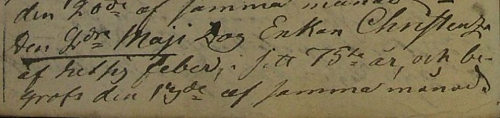 den 20de af samma månad
Den 2dre Maji dog Enkan Christen
af hetsig feber, i sitt 75te år, och be-
grofs den 17de af samma månad.